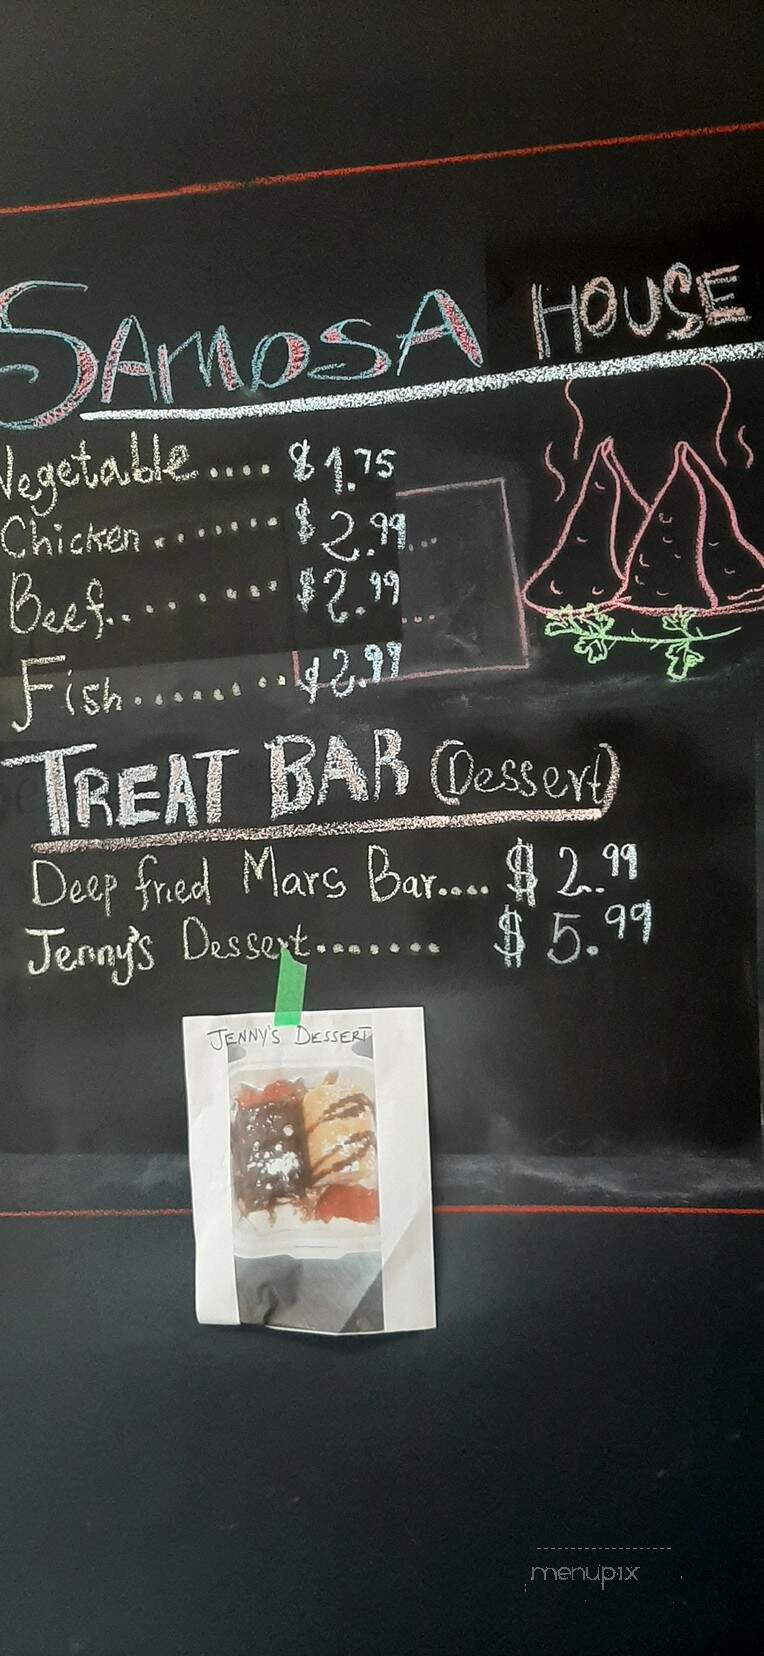 SAMOSA HOUSE
Vegetable.... $1.75
Chicken........ $2.99
Beef......... $2.99
Fish......... $2.99
TREAT BAR (Dessert)
Deep fried Mars Bar.... $2.99
Jenny's Dessert........ $5.99
JENNY'S DESSERT
menupix